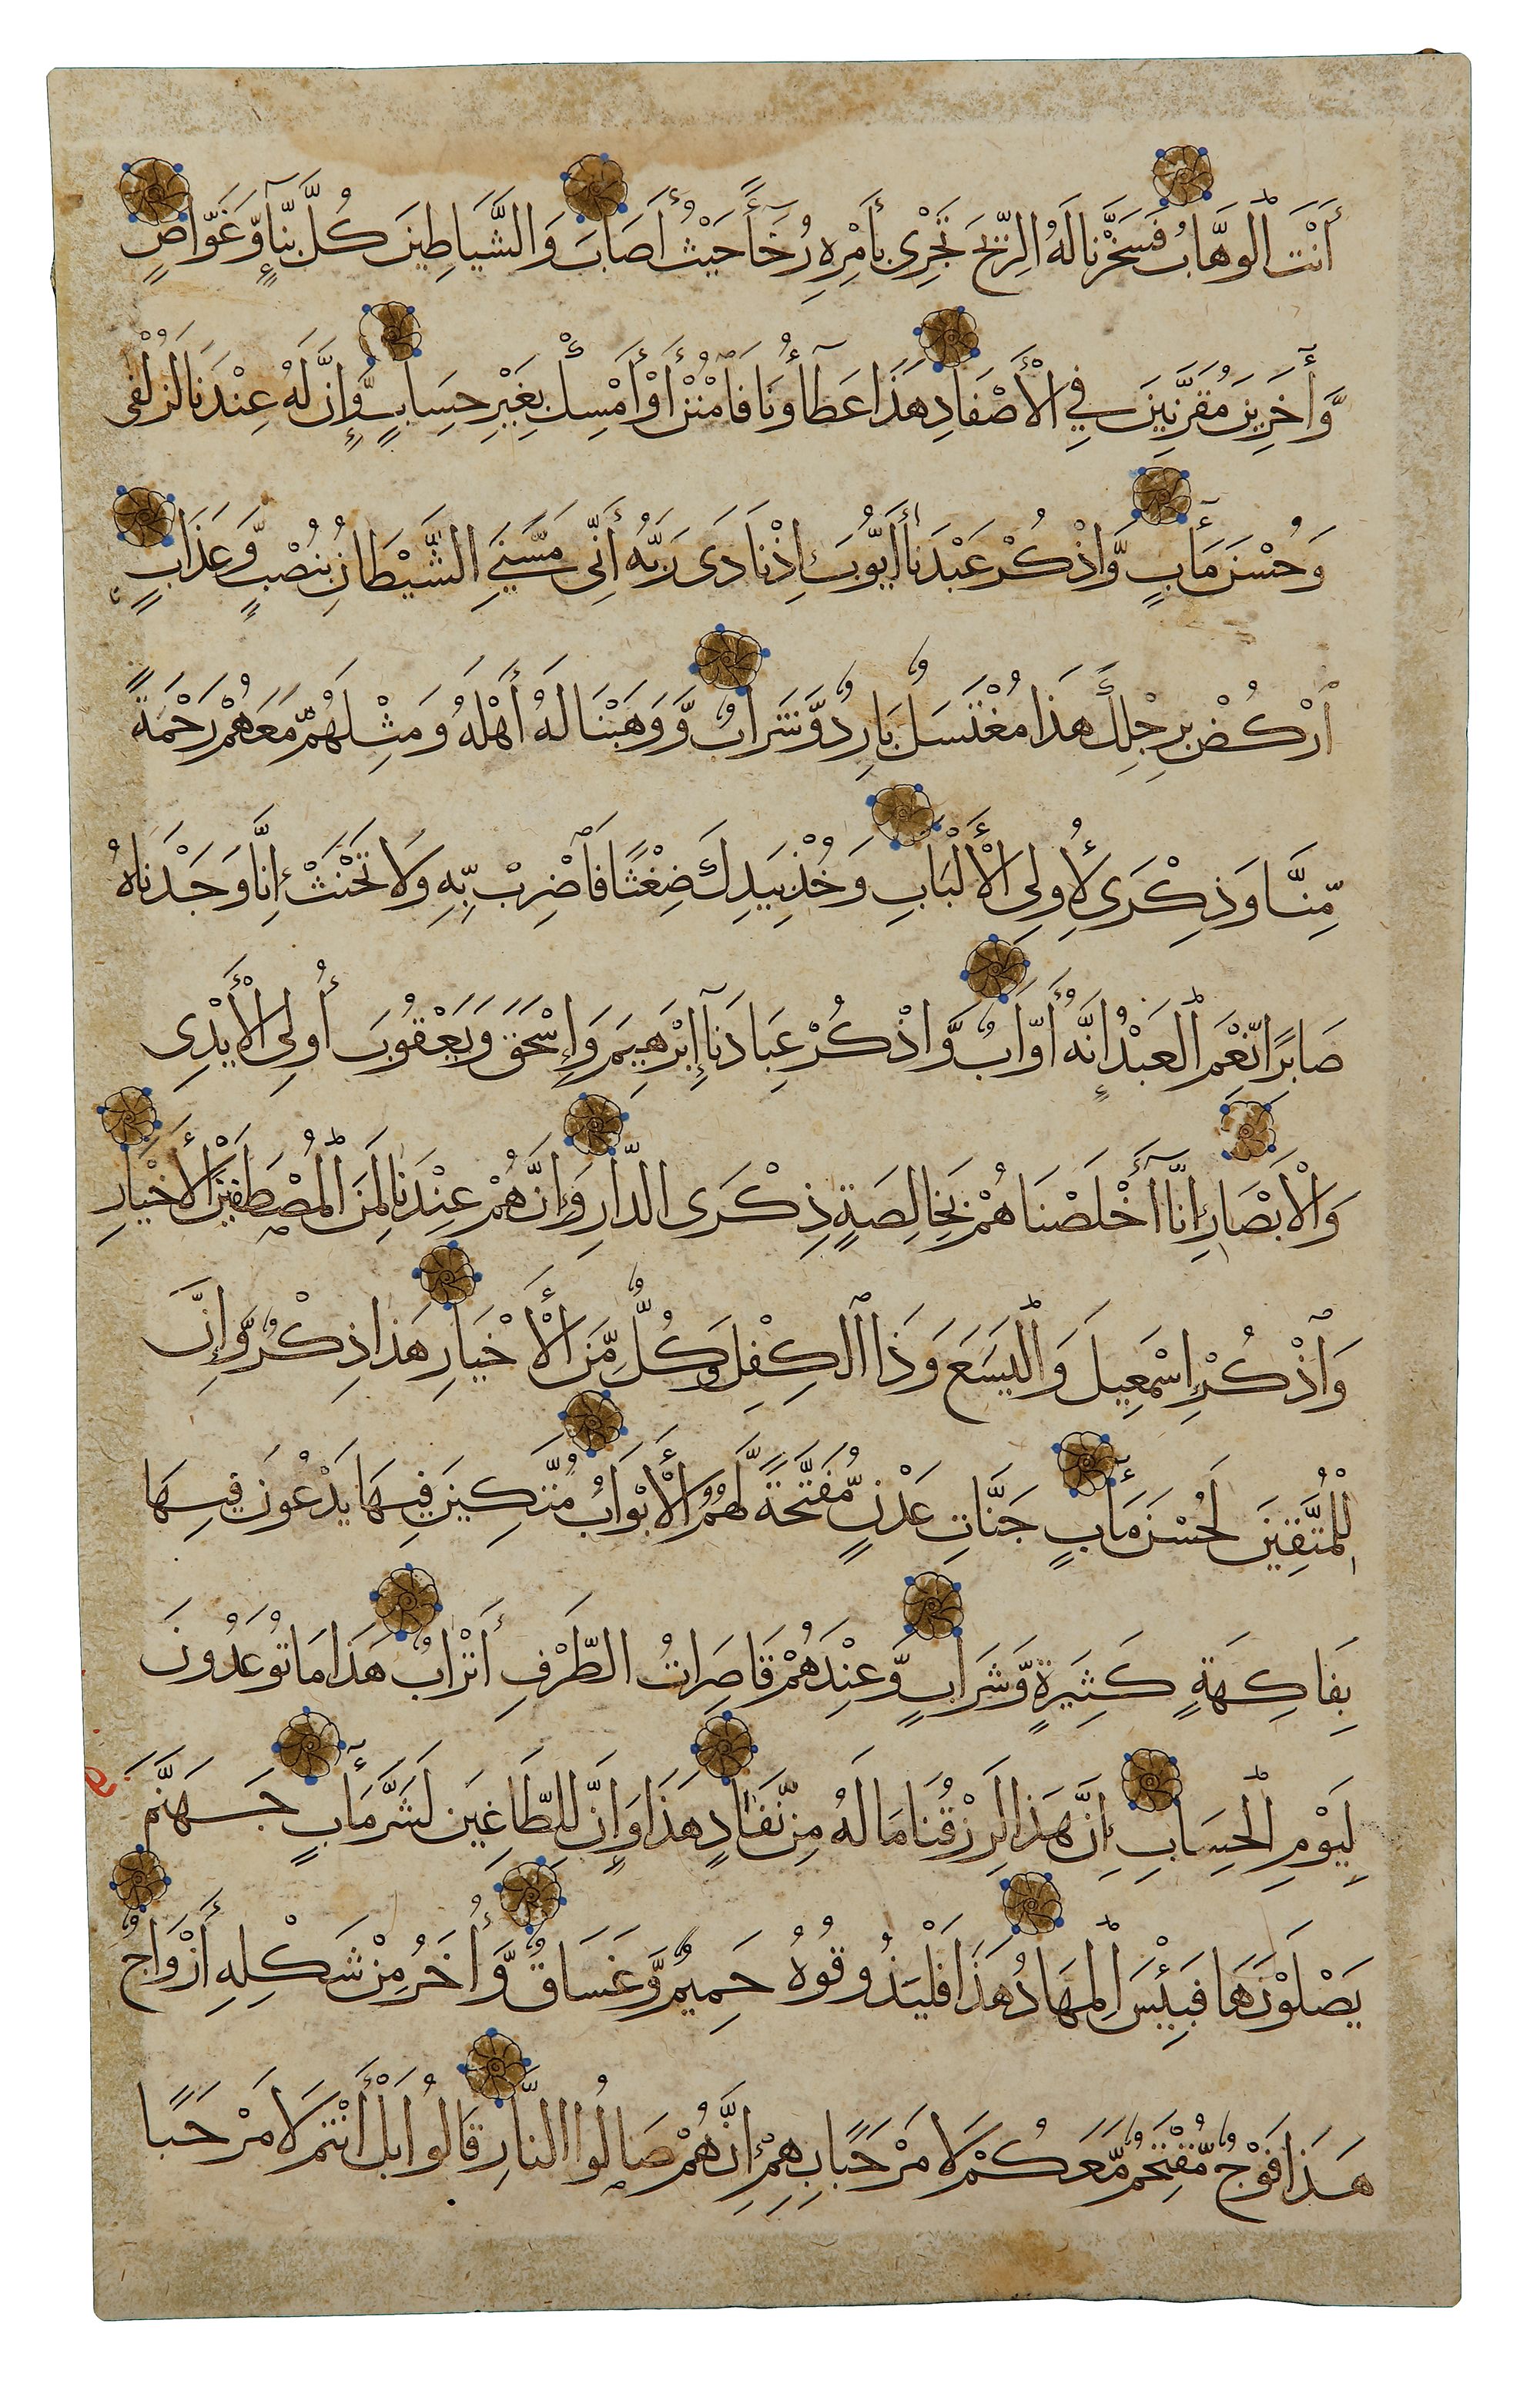 أَنْتَ الْوَهَّابُ فَسَخَّرْنَا لَهُ الرِّيحَ تَجْرِي بِأَمْرِهِ رُخَآءً حَيْثُ أَصَابَ وَالشَّيَاطِينَ كُلَّ بَنَّآءٍ وَّغَوَّاصٍ
وَّأَخَرِينَ مُقَرَّنِينَ فِي الْأَصْفَادِ هَذَا عَطَآؤُنَا فَامْنُنْ أَوْ أَمْسِكْ بِغَيْرِ حِسَابٍ وَّإِنَّ لَهُ عِنْدَنَا لَزُلْفَى
وَحُسْنَ مَأَبٍ وَّاذْكُرْ عَبْدَنَا أَيُّوبَ إِذْ نَادَى رَبَّهُ أَنِّي مَسَّنِيَ الشَّيْطَانُ بِنُصْبٍ وَّعَذَابٍ
ارْكُضْ بِرِجْلِكَ هَذَا مُغْتَسَلٌ بَارِدٌ وَّشَرَابٌ وَّوَهَبْنَا لَهُ أَهْلَهُ وَمِثْلَهُمْ مَّعَهُمْ رَحْمَةً
مِّنَّا وَذِكْرَى لِأُولِي الْأَلْبَابِ وَخُذْ بِيَدِكَ ضِغْثًا فَاضْرِبْ بِّهِ وَلَا تَحْنَثْ إِنَّا وَجَدْنَاهُ
صَابِرًا نِّعْمَ الْعَبْدُ إِنَّهُ أَوَّابٌ وَّاذْكُرْ عِبَادَنَآ إِبْرَهِيمَ وَإِسْحَقَ وَيَعْقُوبَ أُولِي الْأَيْدِي
وَالْأَبْصَارِ إِنَّآ أَخْلَصْنَاهُمْ بِخَالِصَةٍ ذِكْرَى الدَّارِ وَإِنَّهُمْ عِنْدَنَا لَمِنَ الْمُصْطَفَيْنَ الْأَخْيَارِ
وَاذْكُرْ إِسْمَعِيلَ وَالْيَسَعَ وَذَا الْكِفْلِ وَكُلٌّ مِّنَ الْأَخْيَارِ هَذَا ذِكْرٌ وَّإِنَّ
لِلْمُتَّقِينَ لَحُسْنَ مَأَبٍ جَنَّاتِ عَدْنٍ مُّفَتَّحَةً لَّهُمُ الْأَبْوَابُ مُتَّكِينَ فِيهَا يَدْعُونَ فِيهَا
بِفَاكِهَةٍ كَثِيرَةٍ وَّشَرَابٍ وَّعِنْدَهُمْ قَاصِرَاتُ الطَّرْفِ أَتْرَابٌ هَذَا مَا تُوعَدُونَ
لِيَوْمِ الْحِسَابِ إِنَّ هَذَا لَرِزْقُنَا مَا لَهُ مِنْ نَّفَادٍ هَذَا وَإِنَّ لِلطَّاغِينَ لَشَرَّ مَأَبٍ جَهَنَّمَ
يَصْلَوْنَهَا فَبِئْسَ الْمِهَادُ هَذَا فَلْيَذُوقُوهُ حَمِيمٌ وَّغَسَاقٌ وَّأُخَرُ مِنْ شَكْلِهِ أَزْوَاجٌ
هَذَا فَوْجٌ مُّقْتَحِمٌ مَّعَكُمْ لَا مَرْحَبًا بِهِمْ إِنَّهُمْ صَالُوا النَّارِ قَالُوا بَلْ أَنْتُمْ لَا مَرْحَبًا